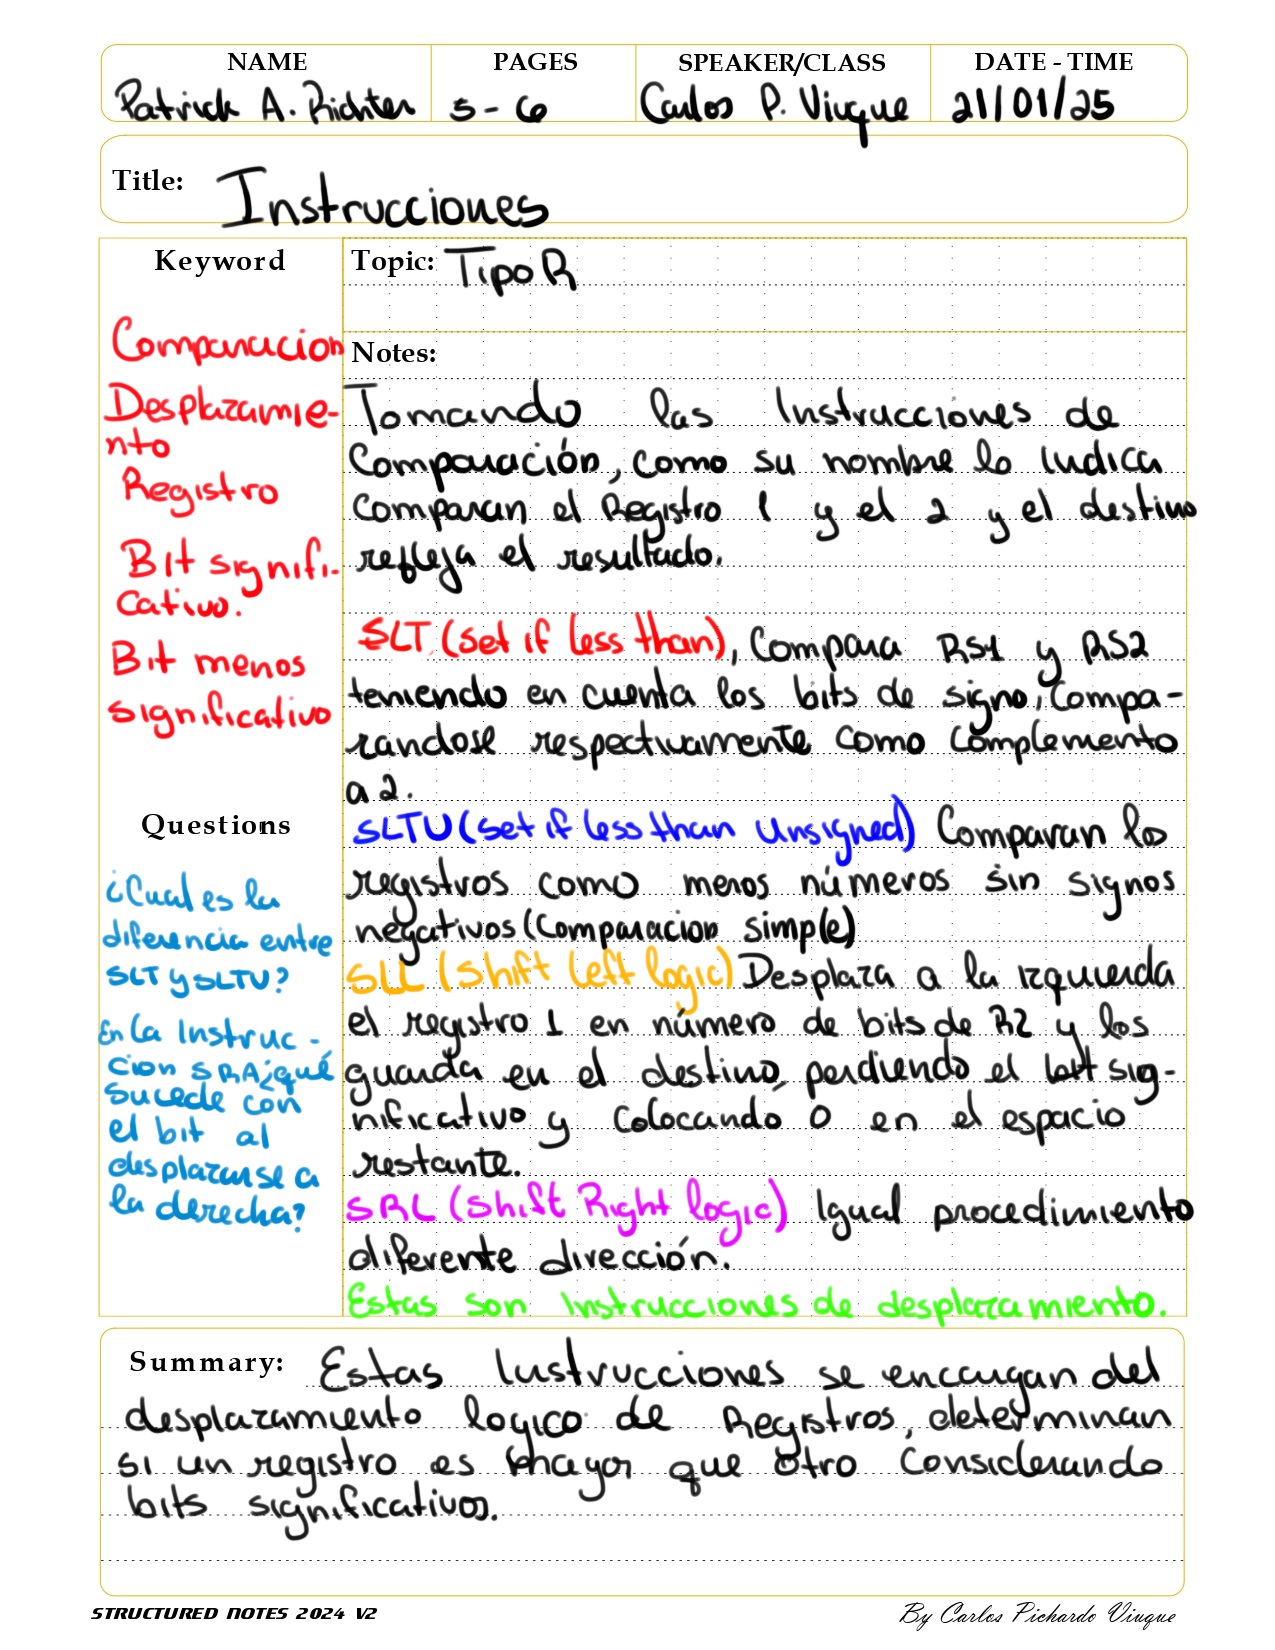 NAME PAGES SPEAKER/CLASS DATE - TIME
Patrick A. Richter 5 - 6 Carlos P. Viuque 21/01/25
Title: Instrucciones
Keyword
Comparacion
Desplazamie-
nto
Registro
Bit signifi-
cativo.
Bit menos
significativo
Questions
¿Cual es la
diferencia entre
SLT y SLTU?
En la Instruc-
cion SRA ¿qué
sucede con
el bit al
desplazarse a
la derecha?
Topic: Tipo R
Notes:
Tomando las Instrucciones de
Comparación, como su nombre lo indica
Comparan el Registro 1 y el 2 y el destino
refleja el resultado.
SLT (set if less than), Compara RS1 y RS2
teniendo en cuenta los bits de signo, Compa-
randose respectivamente como complemento
a 2.
SLTU (set if less than Unsigned) Comparan los
registros como menos números sin signos
negativos (Comparacion simple)
SLL (Shift Left logic) Desplaza a la izquierda
el registro 1 en número de bits de R2 y los
guarda en el destino, perdiendo el bit sig-
nificativo y colocando 0 en el espacio
restante.
SRL (Shift Right logic) Igual procedimiento
diferente dirección.
Estas son Instrucciones de desplazamiento.
Summary: Estas Instrucciones se encargan del
desplazamiento logico de Registros, determinan
si un registro es mayor que otro Considerando
bits significativos.
STRUCTURED NOTES 2024 V2
By Carlos Pichardo Viuque